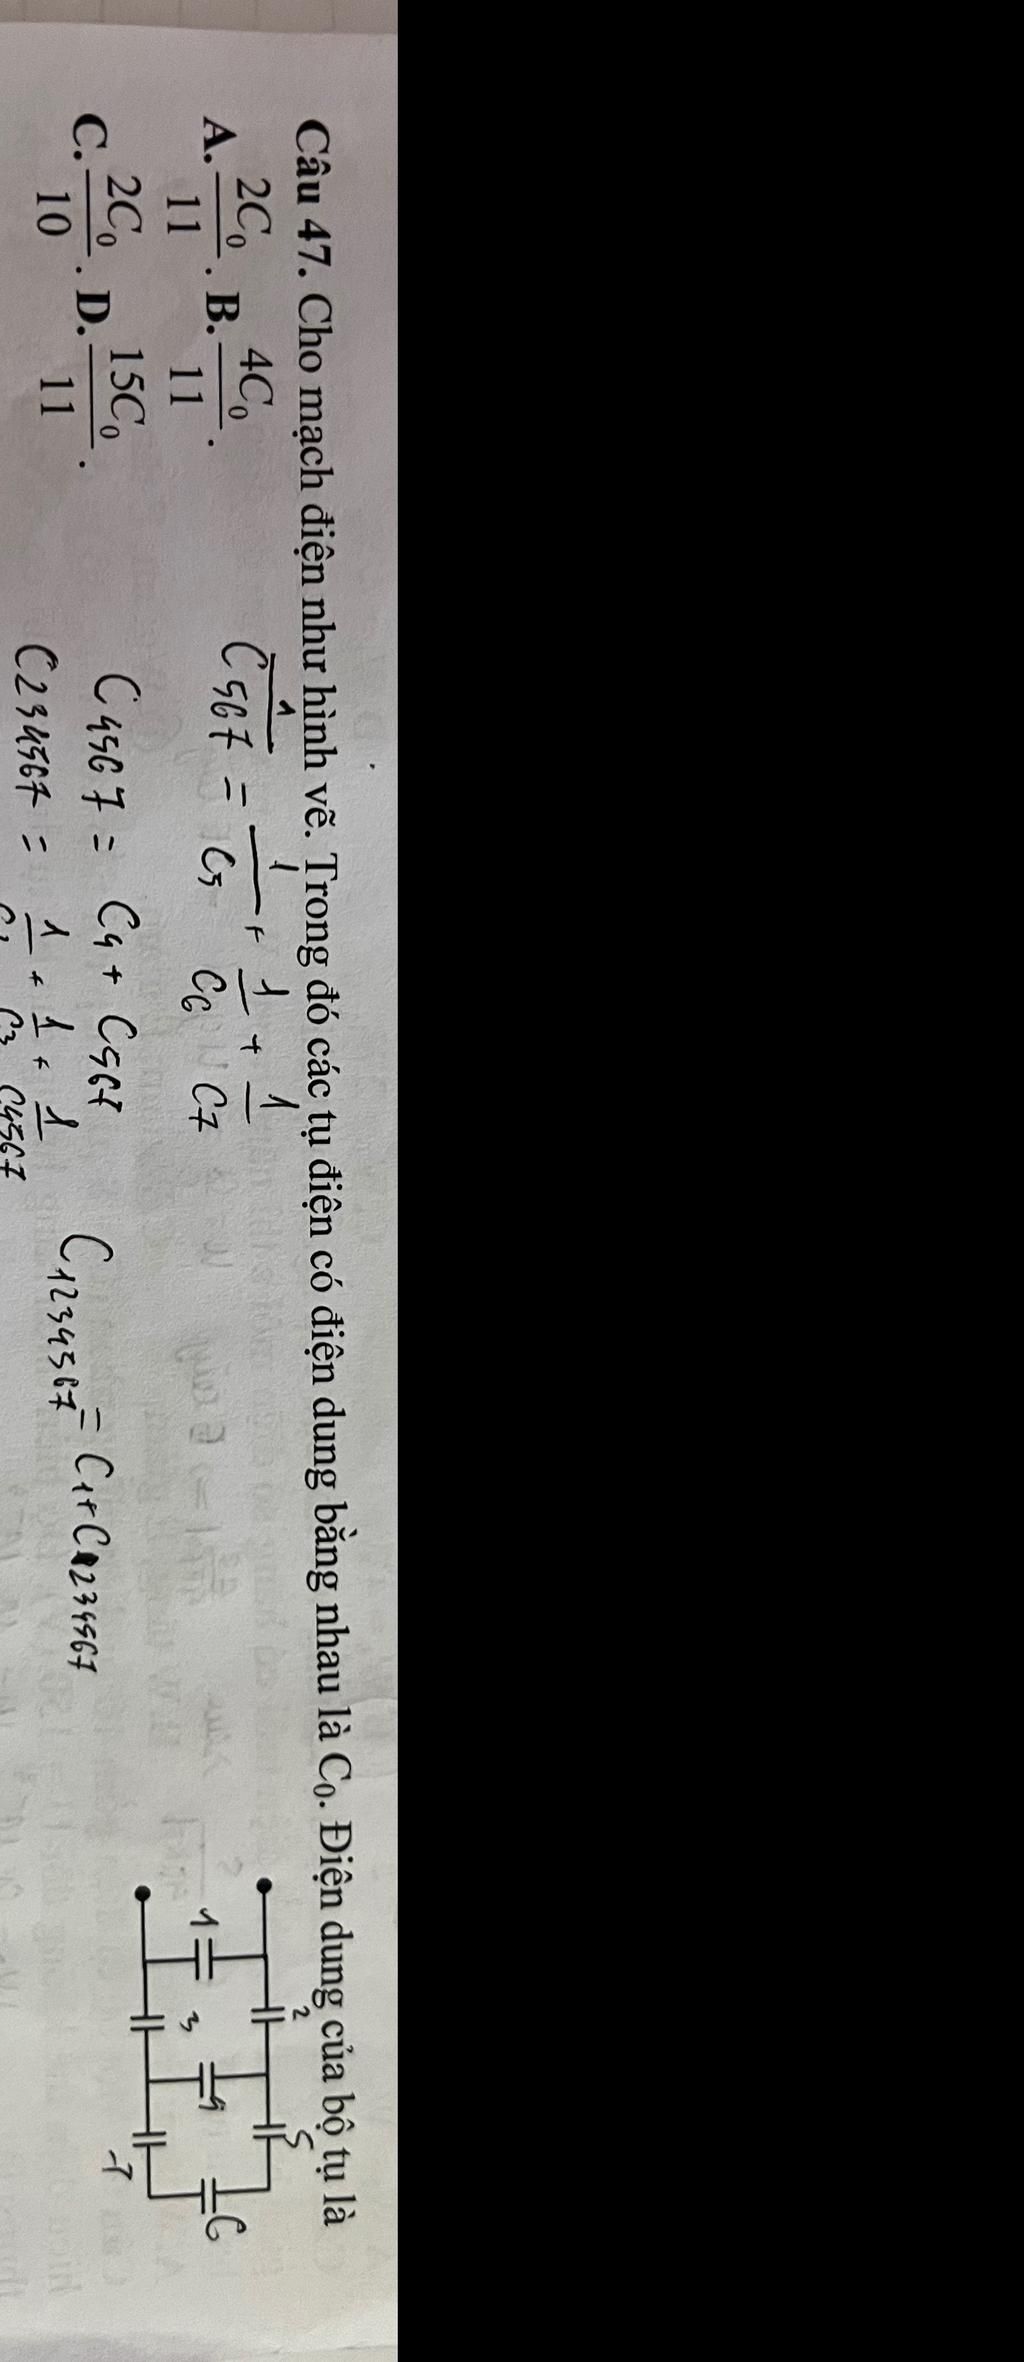 Câu 47. Cho mạch điện như hình vẽ. Trong đó các tụ điện có điện dung bằng nhau là C₀. Điện dung của bộ tụ là
A. 2C₀/11 . B. 4C₀/11 .
C. 2C₀/10 . D. 15C₀/11 .
1/C567 = 1/C5 + 1/C6 + 1/C7
C4567 = C4 + C567
C234567 = 1/C2 + 1/C3 + 1/C4567
C1234567 = C1 + C234567
2 5
1 4 6
3 7